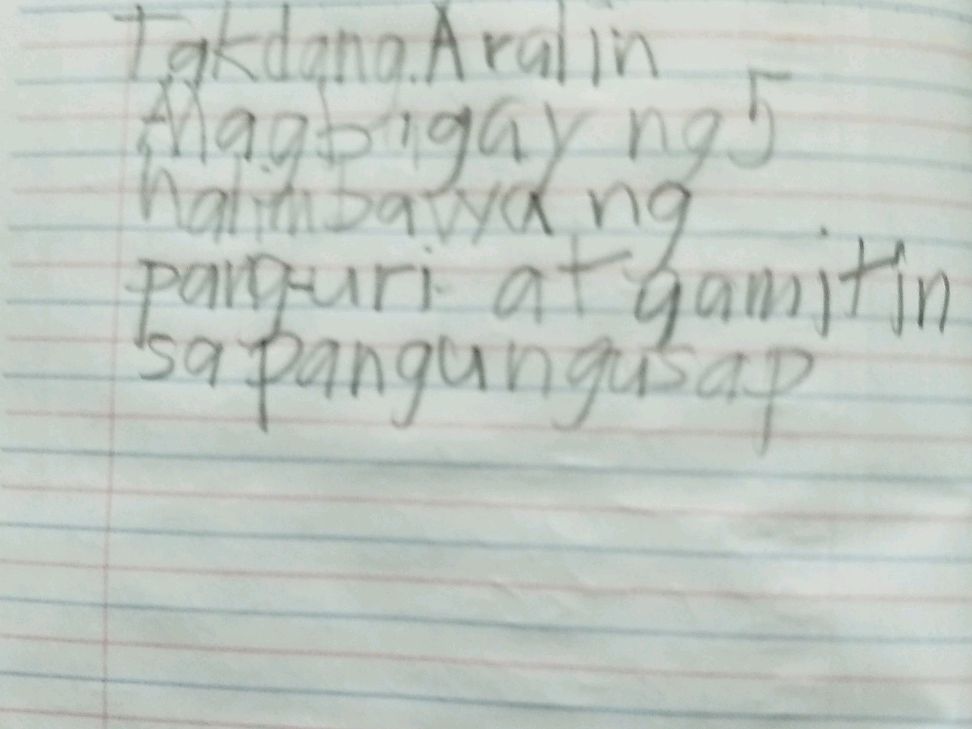 Takdang Aralin
Magbigay ng 5
halimbawa ng
pang-uri at gamitin
sa pangungusap